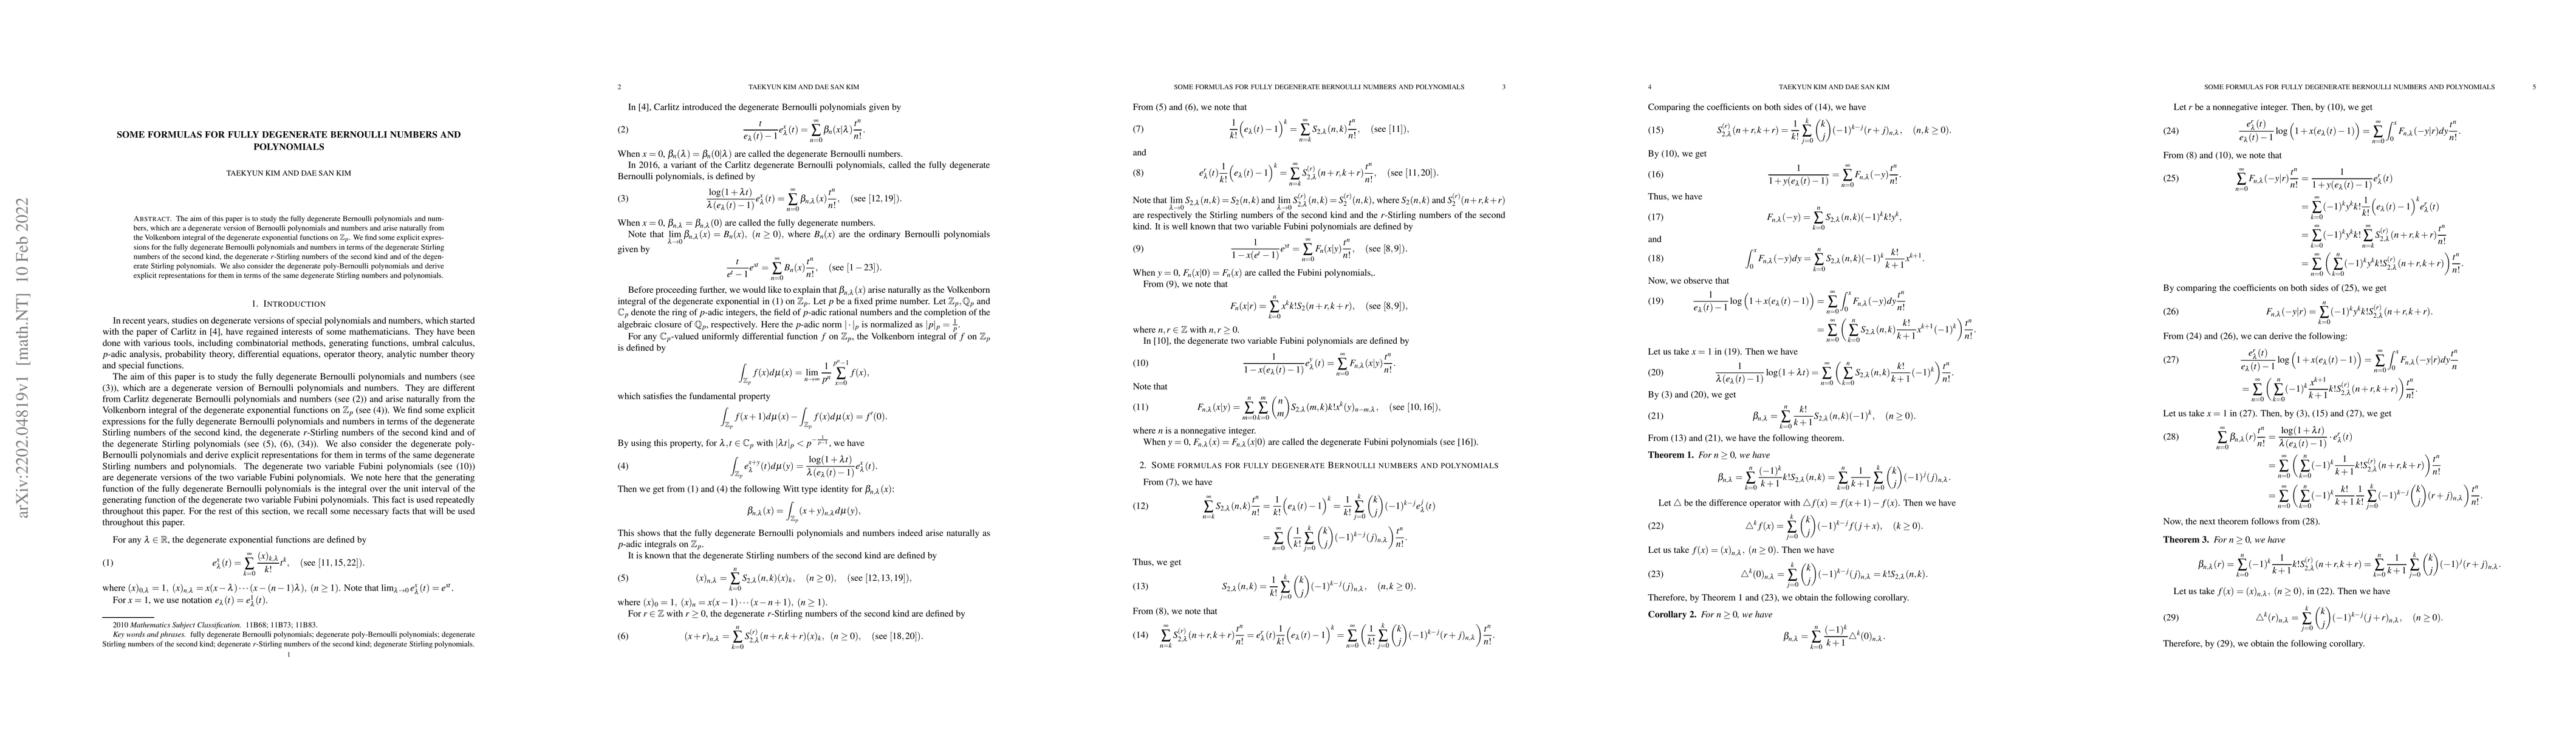 arXiv:2202.04819v1 [math.NT] 10 Feb 2022
SOME FORMULAS FOR FULLY DEGENERATE BERNOULLI NUMBERS AND
POLYNOMIALS
TAEKYUN KIM AND DAE SAN KIM
ABSTRACT. The aim of this paper is to study the fully degenerate Bernoulli polynomials and num-
bers, which are a degenerate version of Bernoulli polynomials and numbers and arise naturally from
the Volkenborn integral of the degenerate exponential functions on ℤ_p. We find some explicit expres-
sions for the fully degenerate Bernoulli polynomials and numbers in terms of the degenerate Stirling
numbers of the second kind, the degenerate r-Stirling numbers of the second kind and of the degen-
erate Stirling polynomials. We also consider the degenerate poly-Bernoulli polynomials and derive
explicit representations for them in terms of the same degenerate Stirling numbers and polynomials.
1. INTRODUCTION
In recent years, studies on degenerate versions of special polynomials and numbers, which started
with the paper of Carlitz in [4], have regained interests of some mathematicians. They have been
done with various tools, including combinatorial methods, generating functions, umbral calculus,
p-adic analysis, probability theory, differential equations, operator theory, analytic number theory
and special functions.
The aim of this paper is to study the fully degenerate Bernoulli polynomials and numbers (see
(3)), which are a degenerate version of Bernoulli polynomials and numbers. They are different
from Carlitz degenerate Bernoulli polynomials and numbers (see (2)) and arise naturally from the
Volkenborn integral of the degenerate exponential functions on ℤ_p (see (4)). We find some explicit
expressions for the fully degenerate Bernoulli polynomials and numbers in terms of the degenerate
Stirling numbers of the second kind, the degenerate r-Stirling numbers of the second kind and of
the degenerate Stirling polynomials (see (5), (6), (34)). We also consider the degenerate poly-
Bernoulli polynomials and derive explicit representations for them in terms of the same degenerate
Stirling numbers and polynomials. The degenerate two variable Fubini polynomials (see (10))
are degenerate versions of the two variable Fubini polynomials. We note here that the generating
function of the fully degenerate Bernoulli polynomials is the integral over the unit interval of the
generating function of the degenerate two variable Fubini polynomials. This fact is used repeatedly
throughout this paper. For the rest of this section, we recall some necessary facts that will be used
throughout this paper.
For any λ ∈ ℝ, the degenerate exponential functions are defined by
(1) e_λ^x(t) = ∑_{k=0}^∞ (x)_{k,λ}/k! t^k, (see [11,15,22]).
where (x)_{0,λ} = 1, (x)_{n,λ} = x(x−λ)⋯(x−(n−1)λ), (n ≥ 1). Note that lim_{λ→0} e_λ^x(t) = e^{xt}.
For x = 1, we use notation e_λ(t) = e_λ^1(t).
2010 Mathematics Subject Classification. 11B68; 11B73; 11B83.
Key words and phrases. fully degenerate Bernoulli polynomials; degenerate poly-Bernoulli polynomials; degenerate
Stirling numbers of the second kind; degenerate r-Stirling numbers of the second kind; degenerate Stirling polynomials.
1
2 TAEKYUN KIM AND DAE SAN KIM
In [4], Carlitz introduced the degenerate Bernoulli polynomials given by
(2) t/(e_λ(t)−1) e_λ^x(t) = ∑_{n=0}^∞ β_n(x|λ) t^n/n!.
When x = 0, β_n(λ) = β_n(0|λ) are called the degenerate Bernoulli numbers.
In 2016, a variant of the Carlitz degenerate Bernoulli polynomials, called the fully degenerate
Bernoulli polynomials, is defined by
(3) log(1+λt)/(λ(e_λ(t)−1)) e_λ^x(t) = ∑_{n=0}^∞ β_{n,λ}(x) t^n/n!, (see [12,19]).
When x = 0, β_{n,λ} = β_{n,λ}(0) are called the fully degenerate numbers.
Note that lim_{λ→0} β_{n,λ}(x) = B_n(x), (n ≥ 0), where B_n(x) are the ordinary Bernoulli polynomials
given by
t/(e^t−1) e^{xt} = ∑_{n=0}^∞ B_n(x) t^n/n!, (see [1−23]).
Before proceeding further, we would like to explain that β_{n,λ}(x) arise naturally as the Volkenborn
integral of the degenerate exponential in (1) on ℤ_p. Let p be a fixed prime number. Let ℤ_p, ℚ_p and
ℂ_p denote the ring of p-adic integers, the field of p-adic rational numbers and the completion of the
algebraic closure of ℚ_p, respectively. Here the p-adic norm |·|_p is normalized as |p|_p = 1/p.
For any ℂ_p-valued uniformly differential function f on ℤ_p, the Volkenborn integral of f on ℤ_p
is defined by
∫_{ℤ_p} f(x)dμ(x) = lim_{n→∞} 1/p^n ∑_{x=0}^{p^n−1} f(x),
which satisfies the fundamental property
∫_{ℤ_p} f(x+1)dμ(x) − ∫_{ℤ_p} f(x)dμ(x) = f′(0).
By using this property, for λ,t ∈ ℂ_p with |λt|_p < p^{−1/(p−1)}, we have
(4) ∫_{ℤ_p} e_λ^{x+y}(t)dμ(y) = log(1+λt)/(λ(e_λ(t)−1)) e_λ^x(t).
Then we get from (1) and (4) the following Witt type identity for β_{n,λ}(x):
β_{n,λ}(x) = ∫_{ℤ_p} (x+y)_{n,λ}dμ(y),
This shows that the fully degenerate Bernoulli polynomials and numbers indeed arise naturally as
p-adic integrals on ℤ_p.
It is known that the degenerate Stirling numbers of the second kind are defined by
(5) (x)_{n,λ} = ∑_{k=0}^n S_{2,λ}(n,k)(x)_k, (n ≥ 0), (see [12,13,19]),
where (x)_0 = 1, (x)_n = x(x−1)⋯(x−n+1), (n ≥ 1).
For r ∈ ℤ with r ≥ 0, the degenerate r-Stirling numbers of the second kind are defined by
(6) (x+r)_{n,λ} = ∑_{k=0}^n S_{2,λ}^{(r)}(n+r,k+r)(x)_k, (n ≥ 0), (see [18,20]).
SOME FORMULAS FOR FULLY DEGENERATE BERNOULLI NUMBERS AND POLYNOMIALS 3
From (5) and (6), we note that
(7) 1/k! (e_λ(t)−1)^k = ∑_{n=k}^∞ S_{2,λ}(n,k) t^n/n!, (see [11]),
and
(8) e_λ^r(t) 1/k! (e_λ(t)−1)^k = ∑_{n=k}^∞ S_{2,λ}^{(r)}(n+r,k+r) t^n/n!, (see [11,20]).
Note that lim_{λ→0} S_{2,λ}(n,k) = S_2(n,k) and lim_{λ→0} S_{2,λ}^{(r)}(n,k) = S_2^{(r)}(n,k), where S_2(n,k) and S_2^{(r)}(n+r,k+r)
are respectively the Stirling numbers of the second kind and the r-Stirling numbers of the second
kind. It is well known that two variable Fubini polynomials are defined by
(9) 1/(1−x(e^t−1)) e^{yt} = ∑_{n=0}^∞ F_n(x|y) t^n/n!, (see [8,9]).
When y = 0, F_n(x|0) = F_n(x) are called the Fubini polynomials,.
From (9), we note that
F_n(x|r) = ∑_{k=0}^n x^k k! S_2(n+r,k+r), (see [8,9]),
where n,r ∈ ℤ with n,r ≥ 0.
In [10], the degenerate two variable Fubini polynomials are defined by
(10) 1/(1−x(e_λ(t)−1)) e_λ^y(t) = ∑_{n=0}^∞ F_{n,λ}(x|y) t^n/n!.
Note that
(11) F_{n,λ}(x|y) = ∑_{m=0}^n ∑_{k=0}^m (n m) S_{2,λ}(m,k)k!x^k(y)_{n−m,λ}, (see [10,16]),
where n is a nonnegative integer.
When y = 0, F_{n,λ}(x) = F_{n,λ}(x|0) are called the degenerate Fubini polynomials (see [16]).
2. SOME FORMULAS FOR FULLY DEGENERATE BERNOULLI NUMBERS AND POLYNOMIALS
From (7), we have
(12) ∑_{n=k}^∞ S_{2,λ}(n,k) t^n/n! = 1/k! (e_λ(t)−1)^k = 1/k! ∑_{j=0}^k (k j)(−1)^{k−j} e_λ^j(t)
= ∑_{n=0}^∞ (1/k! ∑_{j=0}^k (k j)(−1)^{k−j}(j)_{n,λ}) t^n/n!.
Thus, we get
(13) S_{2,λ}(n,k) = 1/k! ∑_{j=0}^k (k j)(−1)^{k−j}(j)_{n,λ}, (n,k ≥ 0).
From (8), we note that
(14) ∑_{n=k}^∞ S_{2,λ}^{(r)}(n+r,k+r) t^n/n! = e_λ^r(t) 1/k! (e_λ(t)−1)^k = ∑_{n=0}^∞ (1/k! ∑_{j=0}^k (k j)(−1)^{k−j}(r+j)_{n,λ}) t^n/n!.
4 TAEKYUN KIM AND DAE SAN KIM
Comparing the coefficients on both sides of (14), we have
(15) S_{2,λ}^{(r)}(n+r,k+r) = 1/k! ∑_{j=0}^k (k j)(−1)^{k−j}(r+j)_{n,λ}, (n,k ≥ 0).
By (10), we get
(16) 1/(1+y(e_λ(t)−1)) = ∑_{n=0}^∞ F_{n,λ}(−y) t^n/n!.
Thus, we have
(17) F_{n,λ}(−y) = ∑_{k=0}^n S_{2,λ}(n,k)(−1)^k k!y^k,
and
(18) ∫_0^x F_{n,λ}(−y)dy = ∑_{k=0}^n S_{2,λ}(n,k)(−1)^k k!/(k+1) x^{k+1}.
Now, we observe that
(19) 1/(e_λ(t)−1) log(1+x(e_λ(t)−1)) = ∑_{n=0}^∞ ∫_0^x F_{n,λ}(−y)dy t^n/n!
= ∑_{n=0}^∞ (∑_{k=0}^n S_{2,λ}(n,k) k!/(k+1) x^{k+1}(−1)^k) t^n/n!.
Let us take x = 1 in (19). Then we have
(20) 1/(λ(e_λ(t)−1)) log(1+λt) = ∑_{n=0}^∞ (∑_{k=0}^n S_{2,λ}(n,k) k!/(k+1) (−1)^k) t^n/n!.
By (3) and (20), we get
(21) β_{n,λ} = ∑_{k=0}^n k!/(k+1) S_{2,λ}(n,k)(−1)^k, (n ≥ 0).
From (13) and (21), we have the following theorem.
Theorem 1. For n ≥ 0, we have
β_{n,λ} = ∑_{k=0}^n (−1)^k/(k+1) k!S_{2,λ}(n,k) = ∑_{k=0}^n 1/(k+1) ∑_{j=0}^k (k j)(−1)^j(j)_{n,λ}.
Let △ be the difference operator with △f(x) = f(x+1) − f(x). Then we have
(22) △^k f(x) = ∑_{j=0}^k (k j)(−1)^{k−j} f(j+x), (k ≥ 0).
Let us take f(x) = (x)_{n,λ}, (n ≥ 0). Then we have
(23) △^k(0)_{n,λ} = ∑_{j=0}^k (k j)(−1)^{k−j}(j)_{n,λ} = k!S_{2,λ}(n,k).
Therefore, by Theorem 1 and (23), we obtain the following corollary.
Corollary 2. For n ≥ 0, we have
β_{n,λ} = ∑_{k=0}^n (−1)^k/(k+1) △^k(0)_{n,λ}.
SOME FORMULAS FOR FULLY DEGENERATE BERNOULLI NUMBERS AND POLYNOMIALS 5
Let r be a nonnegative integer. Then, by (10), we get
(24) e_λ^r(t)/(e_λ(t)−1) log(1+x(e_λ(t)−1)) = ∑_{n=0}^∞ ∫_0^x F_{n,λ}(−y|r)dy t^n/n!.
From (8) and (10), we note that
(25) ∑_{n=0}^∞ F_{n,λ}(−y|r) t^n/n! = 1/(1+y(e_λ(t)−1)) e_λ^r(t)
= ∑_{k=0}^∞ (−1)^k y^k k! 1/k! (e_λ(t)−1)^k e_λ^r(t)
= ∑_{k=0}^∞ (−1)^k y^k k! ∑_{n=k}^∞ S_{2,λ}^{(r)}(n+r,k+r) t^n/n!
= ∑_{n=0}^∞ (∑_{k=0}^n (−1)^k y^k k!S_{2,λ}^{(r)}(n+r,k+r)) t^n/n!.
By comparing the coefficients on both sides of (25), we get
(26) F_{n,λ}(−y|r) = ∑_{k=0}^n (−1)^k y^k k!S_{2,λ}^{(r)}(n+r,k+r).
From (24) and (26), we can derive the following:
(27) e_λ^r(t)/(e_λ(t)−1) log(1+x(e_λ(t)−1)) = ∑_{n=0}^∞ ∫_0^x F_{n,λ}(−y|r)dy t^n/n
= ∑_{n=0}^∞ (∑_{k=0}^n (−1)^k x^{k+1}/(k+1) k!S_{2,λ}^{(r)}(n+r,k+r)) t^n/n!.
Let us take x = 1 in (27). Then, by (3), (15) and (27), we get
(28) ∑_{n=0}^∞ β_{n,λ}(r) t^n/n! = log(1+λt)/(λ(e_λ(t)−1)) · e_λ^r(t)
= ∑_{n=0}^∞ (∑_{k=0}^n (−1)^k 1/(k+1) k!S_{2,λ}^{(r)}(n+r,k+r)) t^n/n!
= ∑_{n=0}^∞ (∑_{k=0}^n (−1)^k k!/(k+1) 1/k! ∑_{j=0}^k (−1)^{k−j} (k j)(r+j)_{n,λ}) t^n/n!.
Now, the next theorem follows from (28).
Theorem 3. For n ≥ 0, we have
β_{n,λ}(r) = ∑_{k=0}^n (−1)^k 1/(k+1) k!S_{2,λ}^{(r)}(n+r,k+r) = ∑_{k=0}^n 1/(k+1) ∑_{j=0}^k (k j)(−1)^j(r+j)_{n,λ}.
Let us take f(x) = (x)_{n,λ}, (n ≥ 0), in (22). Then we have
(29) △^k(r)_{n,λ} = ∑_{j=0}^k (k j)(−1)^{k−j}(j+r)_{n,λ}, (n ≥ 0).
Therefore, by (29), we obtain the following corollary.